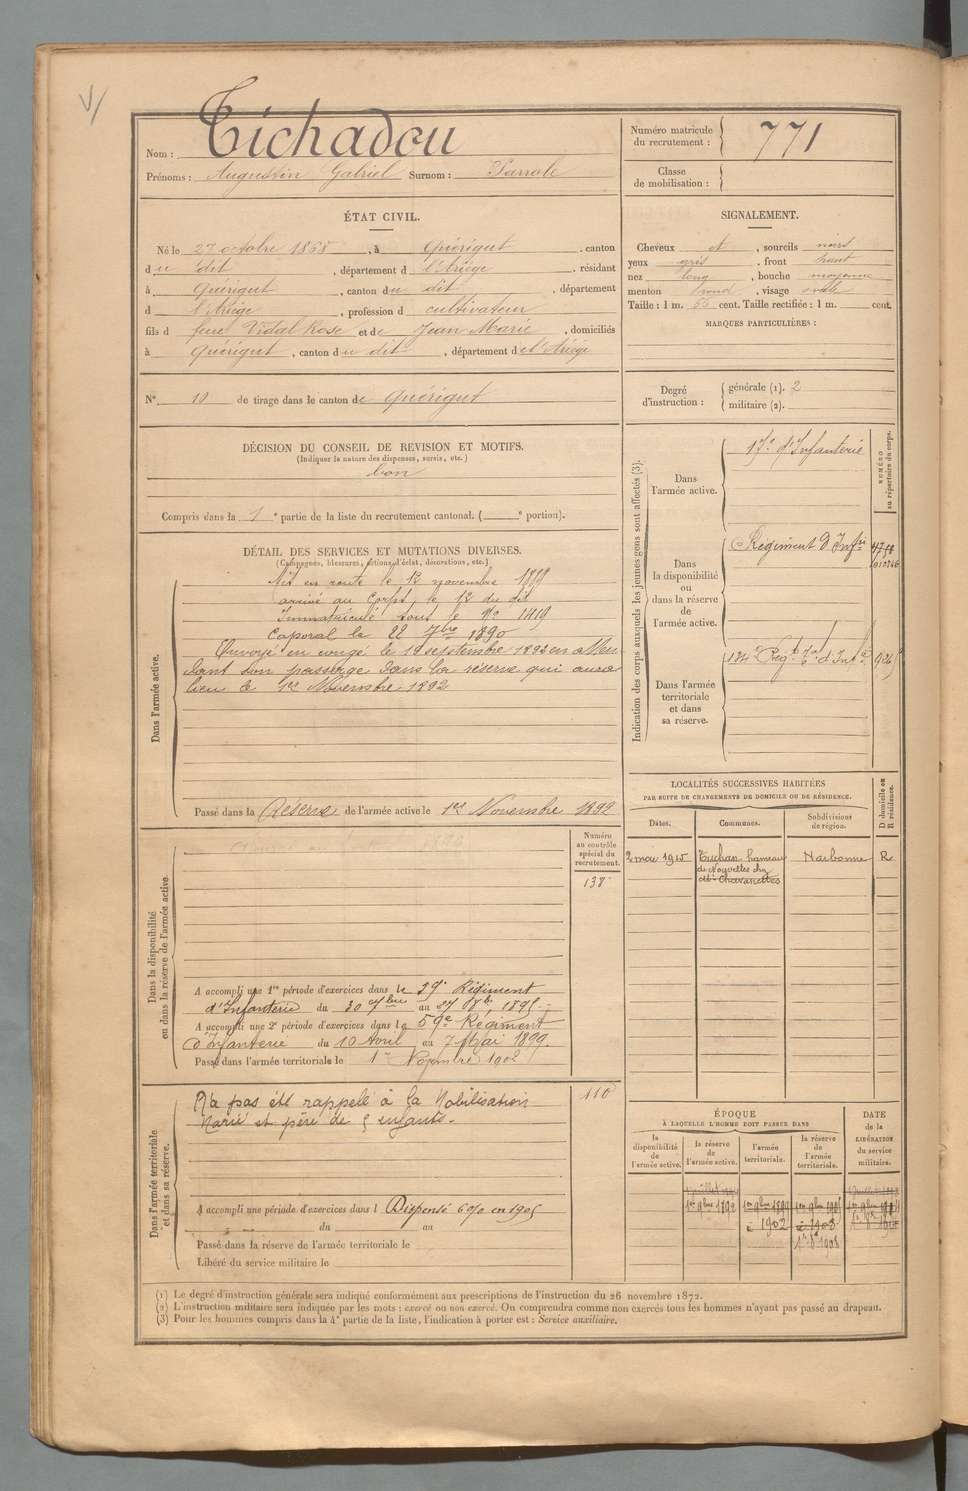 Tichadou
Nom :
Prénoms : Augustin Gabriel Surnom : Parrole
Numéro matricule
du recrutement : 771
Classe
de mobilisation :
ÉTAT CIVIL.
Né le 27 octobre 1868, à Quérigut, canton
du dit, département d l'Ariège, résidant
à Quérigut, canton du dit, département
d l'Ariège, profession d cultivateur
fils d feue Vidal Rose et de Jean Marie, domiciliés
à Quérigut, canton du dit, département de l'Ariège
N° 10 de tirage dans le canton de Quérigut
SIGNALEMENT.
Cheveux et, sourcils noirs
yeux gris, front haut
nez long, bouche moyenne
menton rond, visage ovale
Taille : 1 m. 66 cent. Taille rectifiée : 1 m. cent.
MARQUES PARTICULIÈRES :
Degré
d'instruction :
générale (1). 2
militaire (2).
DÉCISION DU CONSEIL DE REVISION ET MOTIFS.
(Indiquer la nature des dispenses, sursis, etc.)
bon
Compris dans la 1e partie de la liste du recrutement cantonal. ( e portion).
DÉTAIL DES SERVICES ET MUTATIONS DIVERSES.
(Campagnes, blessures, actions d'éclat, décorations, etc.)
Dans l'armée active.
Mis en route le 12 novembre 1889
arrivé au Corps le 12 du dit
Immatriculé sous le No 1419
Caporal le 22 7bre 1890
Envoyé en congé le 19 septembre 1892 en atten
dant son passage dans la réserve qui aura
lieu le 1er Novembre 1892
Passé dans la Réserve de l'armée active le 1er Novembre 1892
Indication des corps auxquels les jeunes gens sont affectés (3).
NUMÉRO
au répertoire du corps.
Dans
l'armée active.
17e d'Infanterie
Dans
la disponibilité
ou
dans la réserve
de
l'armée active.
Régiment d'Infrie
Dans l'armée
territoriale
et dans
sa réserve.
134e Regt tal d'Infie
LOCALITÉS SUCCESSIVES HABITÉES
PAR SUITE DE CHANGEMENTS DE DOMICILE OU DE RÉSIDENCE.
D domicile ou
R résidence.
Dates.
Communes.
Subdivisions
de région.
2 mai 1915 Tuchan hameau Narbonne R
de Nouvelles
Numéro
au contrôle
spécial du
recrutement.
138
Dans la disponibilité
ou dans la réserve de l'armée active.
A accompli une 1re période d'exercices dans le 59e Régiment
d'Infanterie du 30 7bre au 27 8bre 1895
A accompli une 2e période d'exercices dans le 59e Régiment
d'Infanterie du 10 Avril au 7 Mai 1899.
Passé dans l'armée territoriale le 1er Novembre 1902
Dans l'armée territoriale
et dans sa réserve.
N'a pas été rappelé à la Mobilisation
Marié et père de 5 enfants.
110
A accompli une période d'exercices dans l Dispensé 6 0/0 en 1905
du au
Passé dans la réserve de l'armée territoriale le
Libéré du service militaire le
ÉPOQUE
À LAQUELLE L'HOMME DOIT PASSER DANS
la
disponibilité
de
l'armée active.
la réserve
de
l'armée active.
l'armée
territoriale.
la réserve
de
l'armée
territoriale.
DATE
de la
LIBÉRATION
du service
militaire.
1er 9bre 1892 1er 9bre 1899
1902 1908
(1) Le degré d'instruction générale sera indiqué conformément aux prescriptions de l'instruction du 26 novembre 1872.
(2) L'instruction militaire sera indiquée par les mots : exercé ou non exercé. On comprendra comme non exercés tous les hommes n'ayant pas passé au drapeau.
(3) Pour les hommes compris dans la 4e partie de la liste, l'indication à porter est : Service auxiliaire.